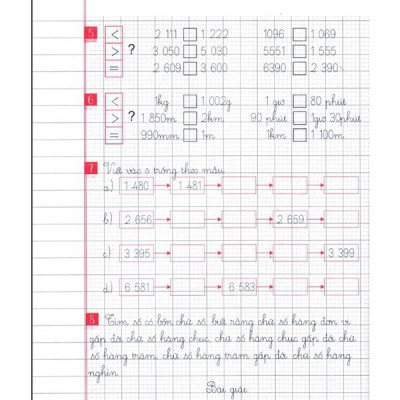 5 < 2 111 □ 1 222 1096 □ 1 069
> ? 3 050 □ 5 030 5551 □ 1 555
= 2 609 □ 3 600 6390 □ 2 390
6 < 1kg □ 1 002g 1 giờ □ 80 phút
> ? 1 850m □ 2km 90 phút □ 1giờ 30phút
= 990mm □ 1m 1km □ 1 100m
7 Viết vào ô trống theo mẫu
a) 1 480 1 481
b) 2 656 2 659
c) 3 395 3 399
d) 6 581 6 583
8 Tìm số có bốn chữ số, biết rằng chữ số hàng đơn vị
gấp đôi chữ số hàng chục, chữ số hàng chục gấp đôi chữ
số hàng trăm, chữ số hàng trăm gấp đôi chữ số hàng
nghìn.
Bài giải